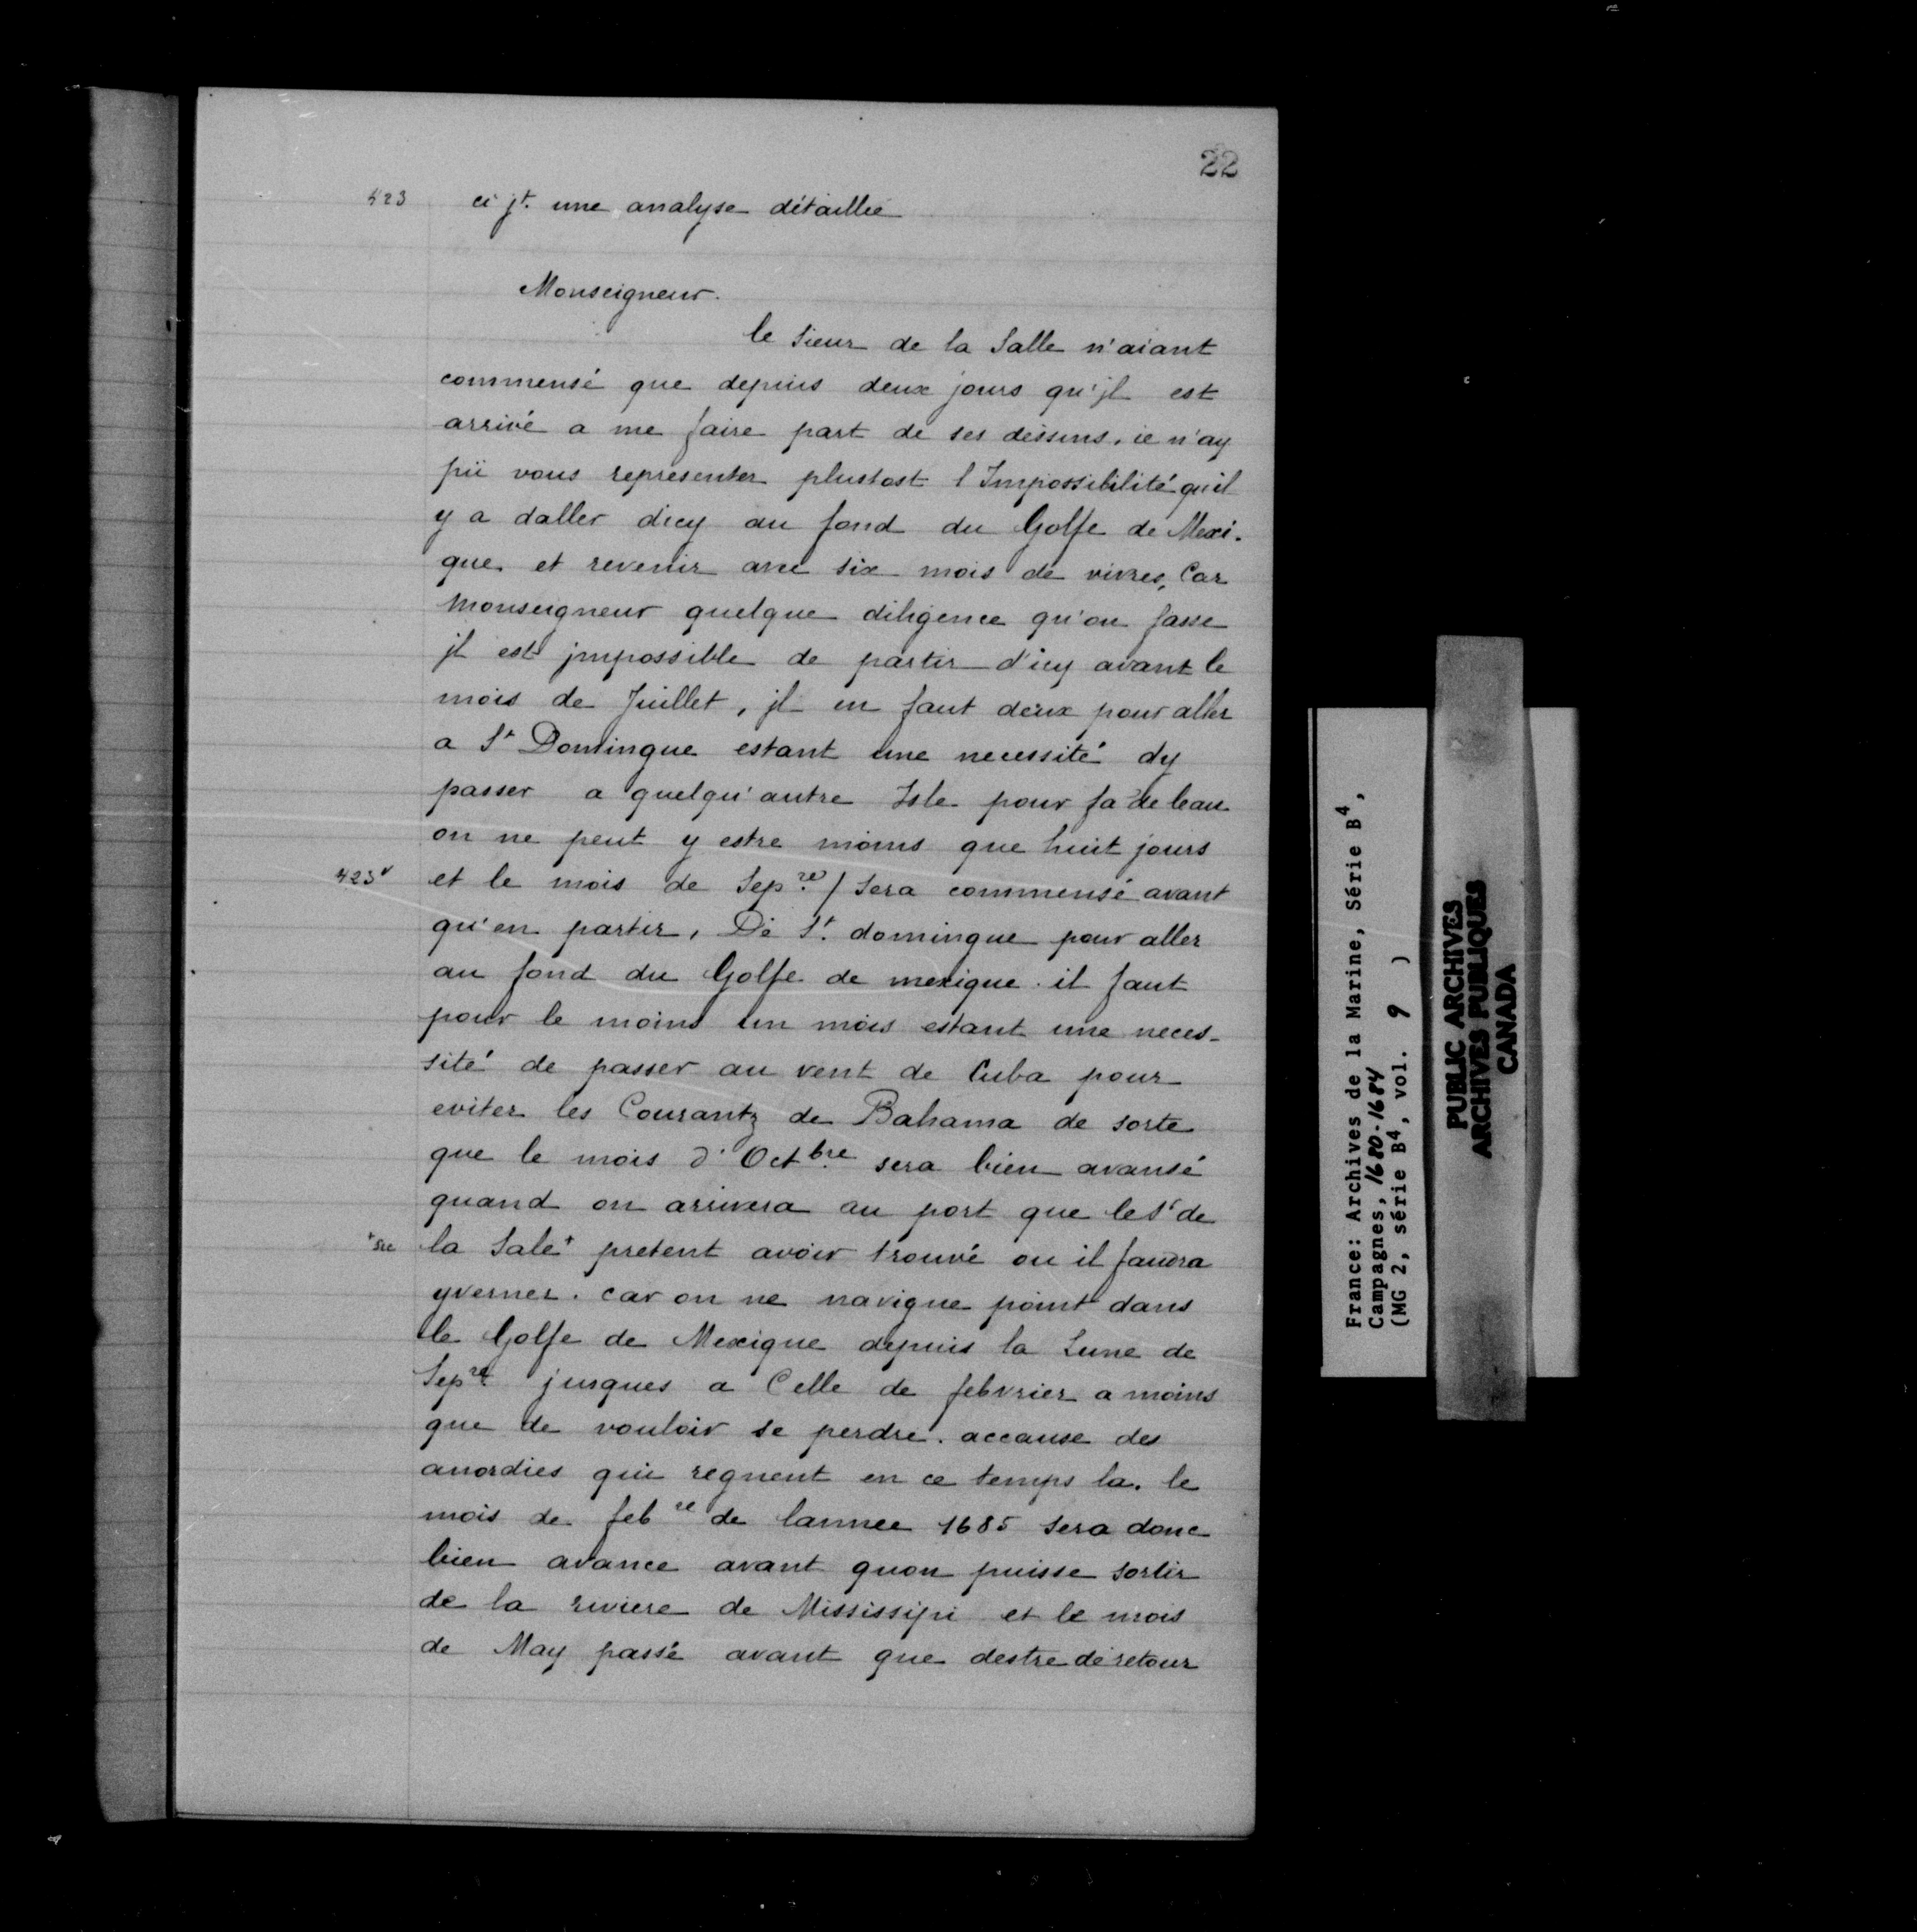 22
423 ci jt. une analyse détaillée
Monseigneur.
le Sieur de la Salle n'aiant
commensé que depuis deux jours qu'jl est
arrivé a me faire part de ses dessins, ie n'ay
pü vous representer plustost l'Impossibilité quil
y a daller dicy au fond du Golfe de Mexi-
que et revenir avec six mois de vivres, Car
Monseigneur quelque diligence qu'on fasse
jl est jmpossible de partir d'icy avant le
mois de Juillet, jl en faut deux pour aller
a St Domingue estant une necessité dy
passer a quelqu'autre Isle pour fa de leau
on ne peut y estre moins que huit jours
423v et le mois de Sepre / sera commensé avant
qu'en partir, De St. domingue pour aller
au fond du Golfe de mexique il faut
pour le moins un mois estant une neces-
sité de passer au vent de Cuba pour
eviter les Courantz de Bahama de sorte
que le mois d'Octbre sera bien avansé
quand on arrivera au port que le Sr de
+sic la Sale+ pretent avoir trouvé ou il faudra
yverner. car on ne navigue point dans
le Golfe de Mexique depuis la Lune de
Sepre jusques a Celle de febvrier a moins
que de vouloir se perdre. accause des
anordies qui regnent en ce temps la. le
mois de febre de lannee 1685 sera donc
bien avance avant quon puisse sortir
de la riviere de Mississipi et le mois
de May passé avant que destre de retour
France: Archives de la Marine, Série B4,
Campagnes, 1680-1684
(MG 2, série B4, vol. 9 )
PUBLIC ARCHIVES
ARCHIVES PUBLIQUES
CANADA